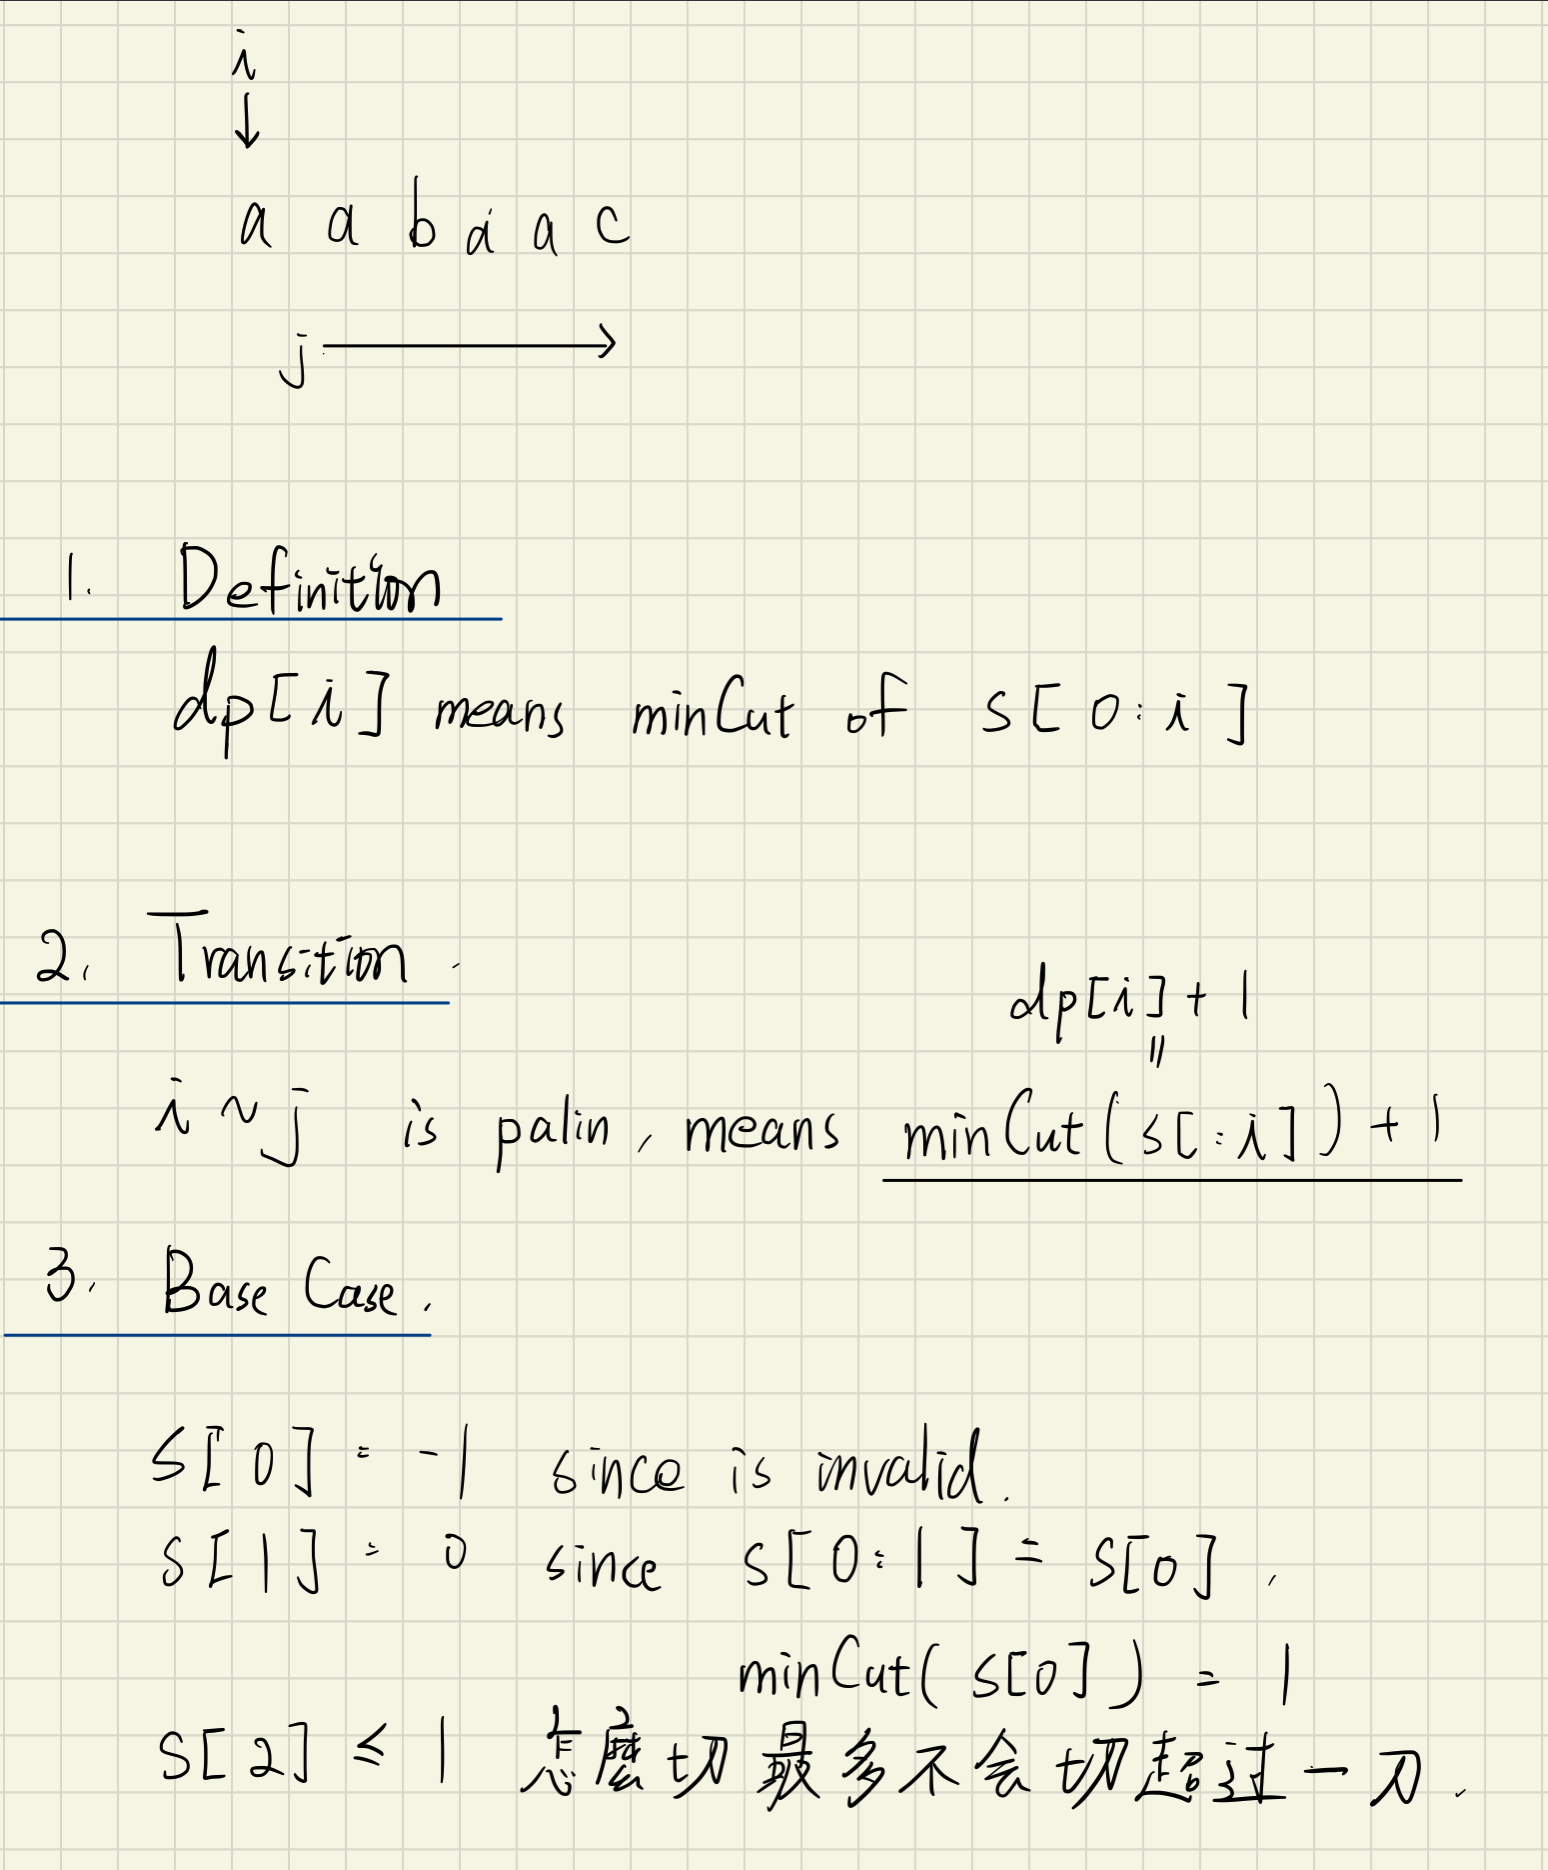 i
↓
a a b a a c
j →
1. Definition
dp[i] means minCut of s[0:i]
2. Transition.
dp[i]+1
=
i~j is palin, means minCut(s[:i])+1
3. Base Case.
s[0] = -1 since is invalid.
s[1] = 0 since s[0:1] = s[0].
minCut(s[0]) = 1
1 2
s[2] ≤ 1 怎麼切最多不会切超过一刀.